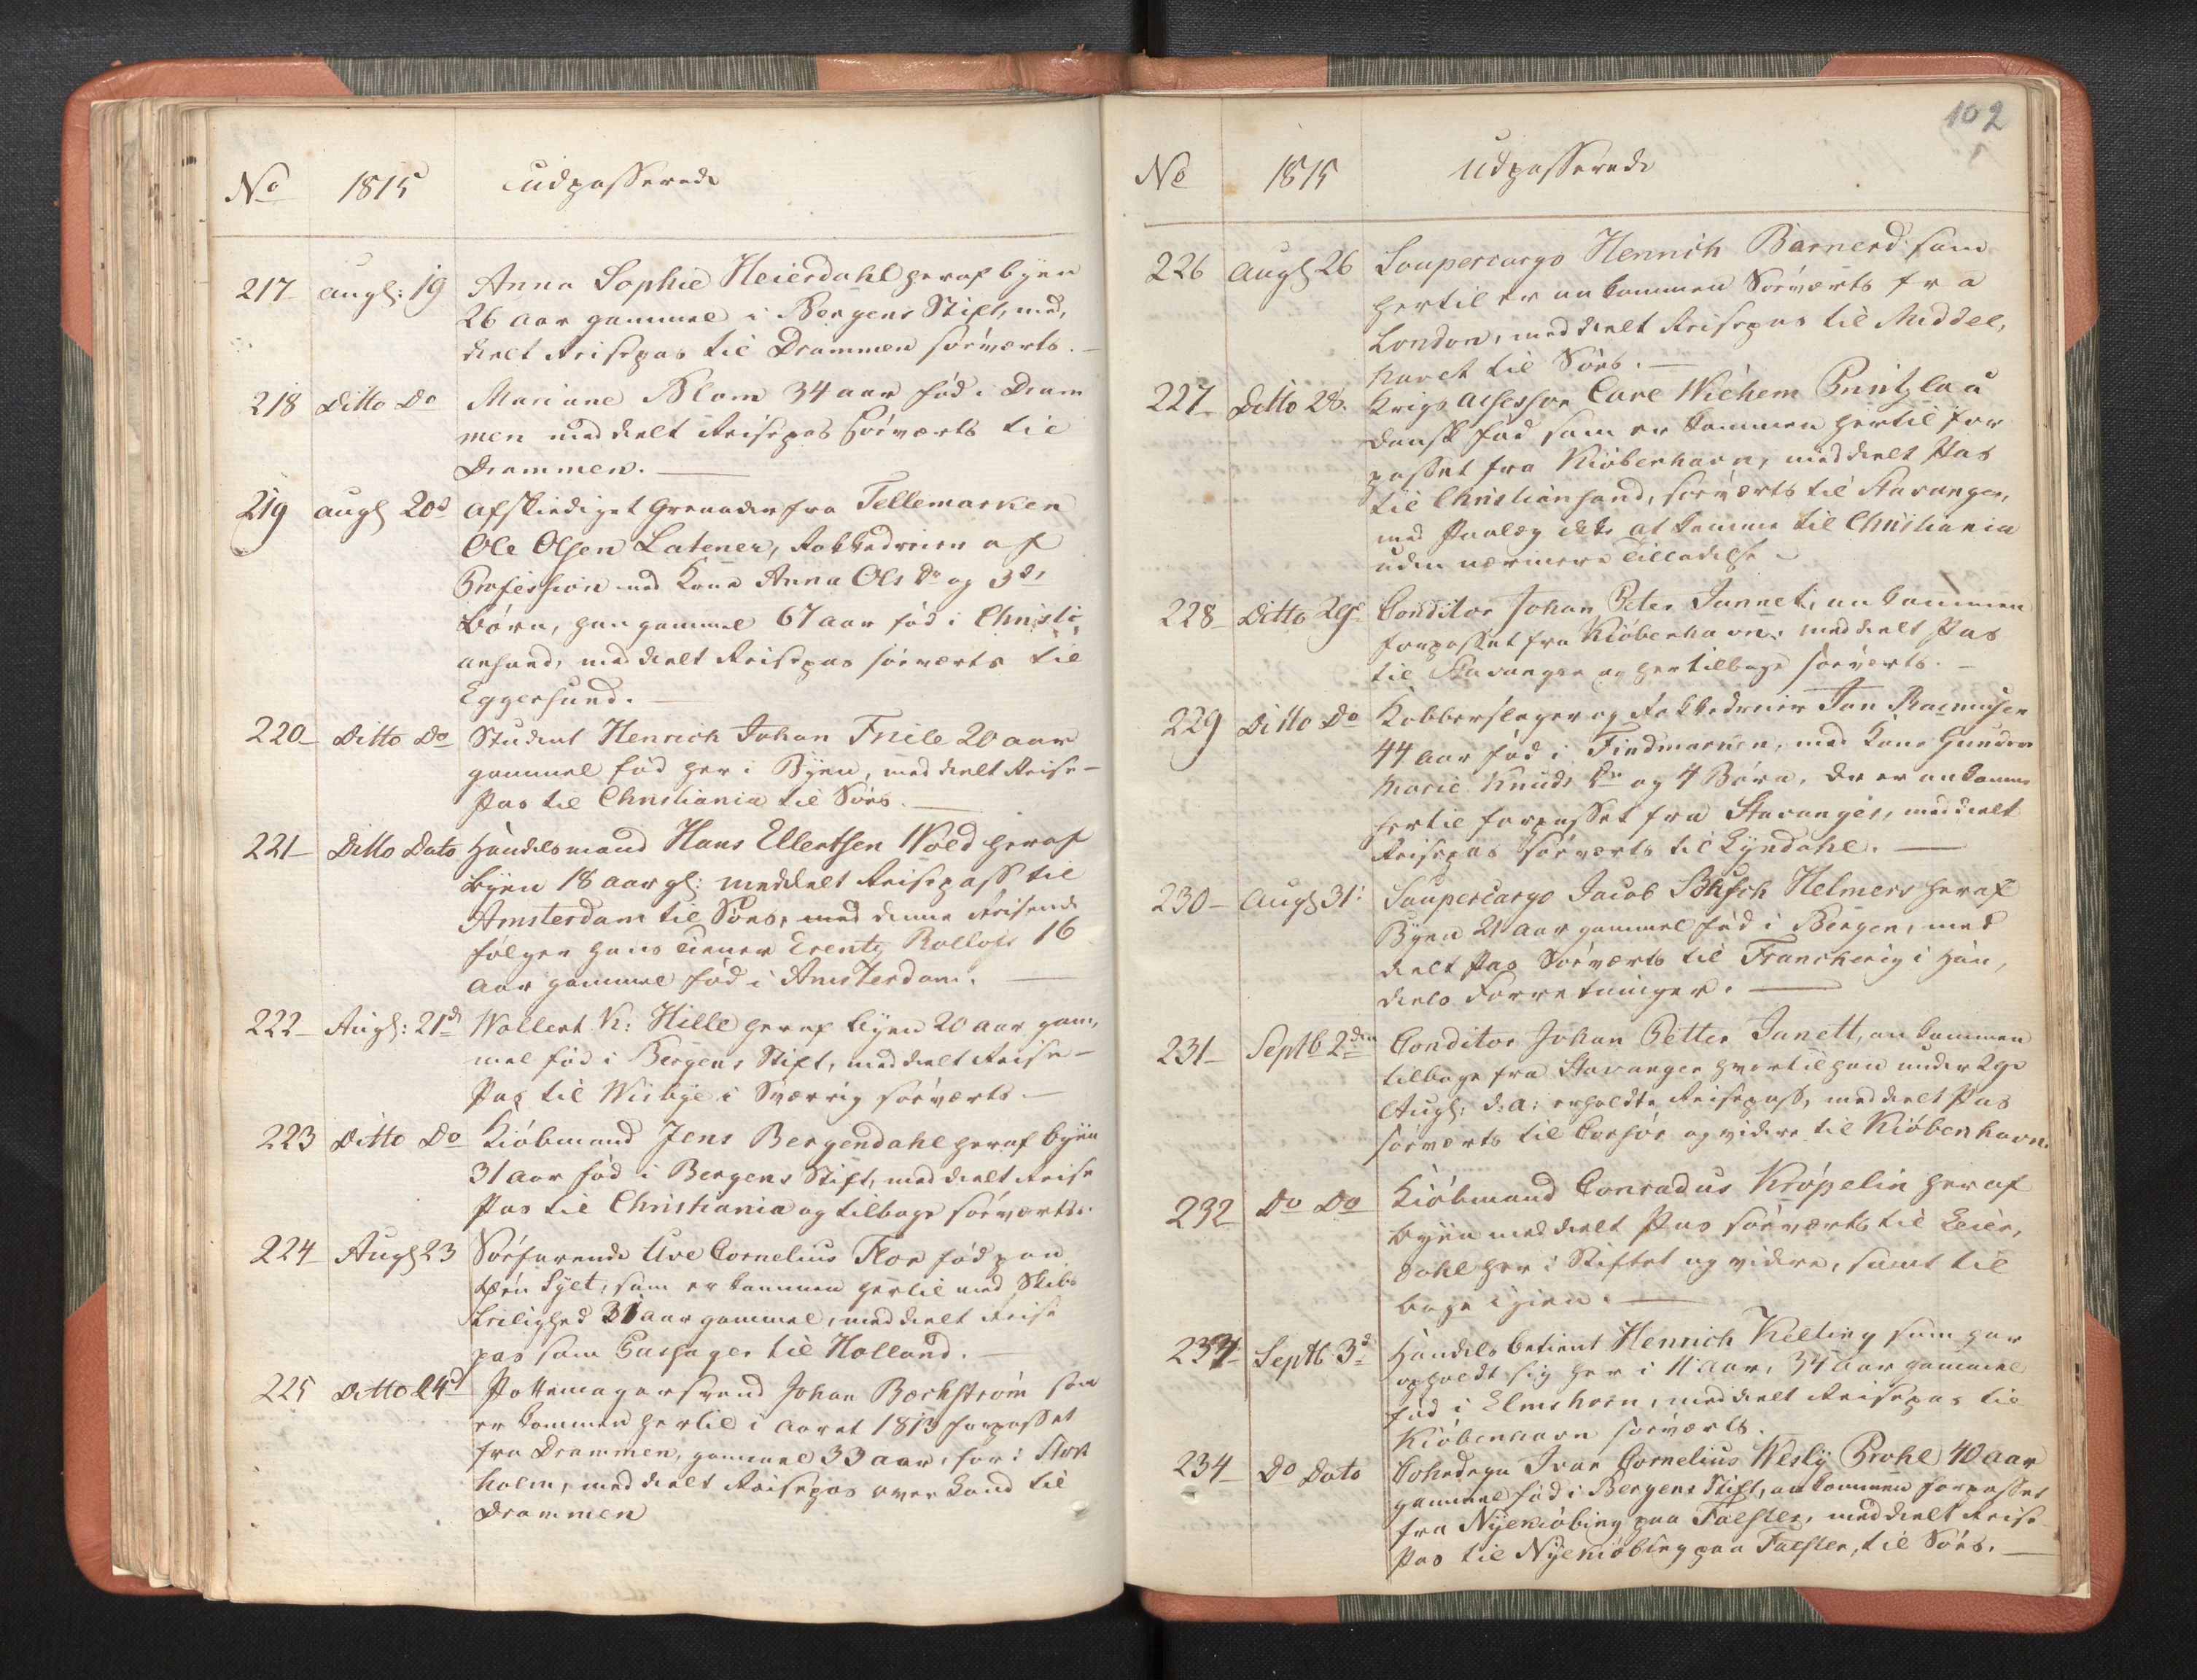 No 1815 Udpasserede
217 augs: 19 Anna Sophie Heierdahl heraf byen
26 aar gammel i Bergens Stift, med,
deelt Reisepas til Drammen söeværts. —
218 Ditto Do Mariane Blom 34 aar föd i Dram
men meddeelt Reisepas söeværts til
Drammen. —
219 augs 20d afskediget Grenadeer fra Tellemarken
Ole Olsen Latener, Rokkedreier af
Profession med Kone Anna Ols Dr og 3de
Börn, han gammel 67 aar föd i Christi
ansand, meddeelt Reisepas söeværts til
Eggersund. —
220 Ditto Do Student Henrich Johan Friele 20 aar
gammel föd her i Byen, meddeelt Reise-
Pas til Christiania til Söes. —
221 Ditto Dato Handelsmand Hans Ellertsen Wold heraf
byen 18 aar gl: meddelt Reisepass til
Amsterdam til Söes, med denne Reisende
fölger hans Tiener Erentz Rollofs 16
aar gammel föd i Amsterdam. —
222 Augs: 21d Wollert K: Hille heraf byen 20 aar gam,
mel föd i Bergens Stift, meddeelt Reise-
Pas til Wisbye i Sverrig söeværts —
223 Ditto Do Kiöbmand Jens Bergendahl heraf byen
31 aar föd i Bergens Stift, meddeelt Reise
Pas til Christiania og tilbage söeværts.
224 Augs 23 Söefarende Uve Cornelius Flor föd paa
Öen Sylt, som er kommen hertil med Skibs
Leilighed 31 aar gammel, meddeelt Reise
pas som Passager til Holland. —
225 Ditto 24d Pottemagersvend Johan Bæckström som
er kommen hertil i aaret 1813 forpasset
fra Drammen, gammel 33 aar, för i Stok
holm, meddeelt Reisepas over Land til
Drammen
102
No 1815 Udpasserede
226 augs 26 Soupercargo Henrich Barnerd som
hertil er ankommen Söeværts fra
London, meddeelt Reisepas til Middel,
havet til Söes. —
227 Ditto 28. Krigs Assessor Carl Wichem Prützlau
Dansk föd som er kommen hertil for
passet fra Kiöbenhavn, meddeelt Pas
til Christiansand, söeværts til Stavanger,
med Paalæg ikke at komme til Christiania
uden nærmere Tilladelse
228 Ditto 29 Conditor Johan Peter Jannet, ankommen
forpasset fra Kiöbenhavn, meddeelt Pas
til Stavanger og her tilbage söeværts. —
229 Ditto Do Kobberslager og Rokkedreier Jan Rasmusen
44 aar föd i Findmarken, med Kone Gunder
Marie Knuds Dr og 4 Börn, der er ankomne
hertil forpasset fra Stavanger, meddeelt
Reisepas söeværts til Lyndahl. —
230 Augs 31: Soupercargo Jacob Busch Helmers heraf
Byen 21 aar gammel föd i Bergen, med
deelt Pas Söeværts til Franckerig i Han,
dels Forretninger. —
231 Septb 2den Conditor Johan Petter Janett, ankommen
tilbage fra Stavanger hvortil han under 29de
Augs: d: a: erholdte Reisepass, meddeelt Pas
söeværts til Corsör og videre til Kiöbenhavn.
232 Do Do Kiöbmand Conradus Kröpelin heraf
byen meddeelt Pas söeværts til Leier,
dahl her i Stiftet og videre, samt til
bage igien. —
233 Septb 3d Handelsbetient Henrich Kelting som har
opholdt sig her i 11 aar, 34 aar gammel
föd i Elmshorn, meddeelt Reisepas til
Kiöbenhavn söeværts.
234 Do Dato Iver Cornelius Wesly Prohl 40 aar
gammel föd i Bergens Stift, ankommen forpasset
fra Nyekiöbing paa Falster, meddeelt Reise-
Pas til Nyekiöbing paa Falster, til Söes. —